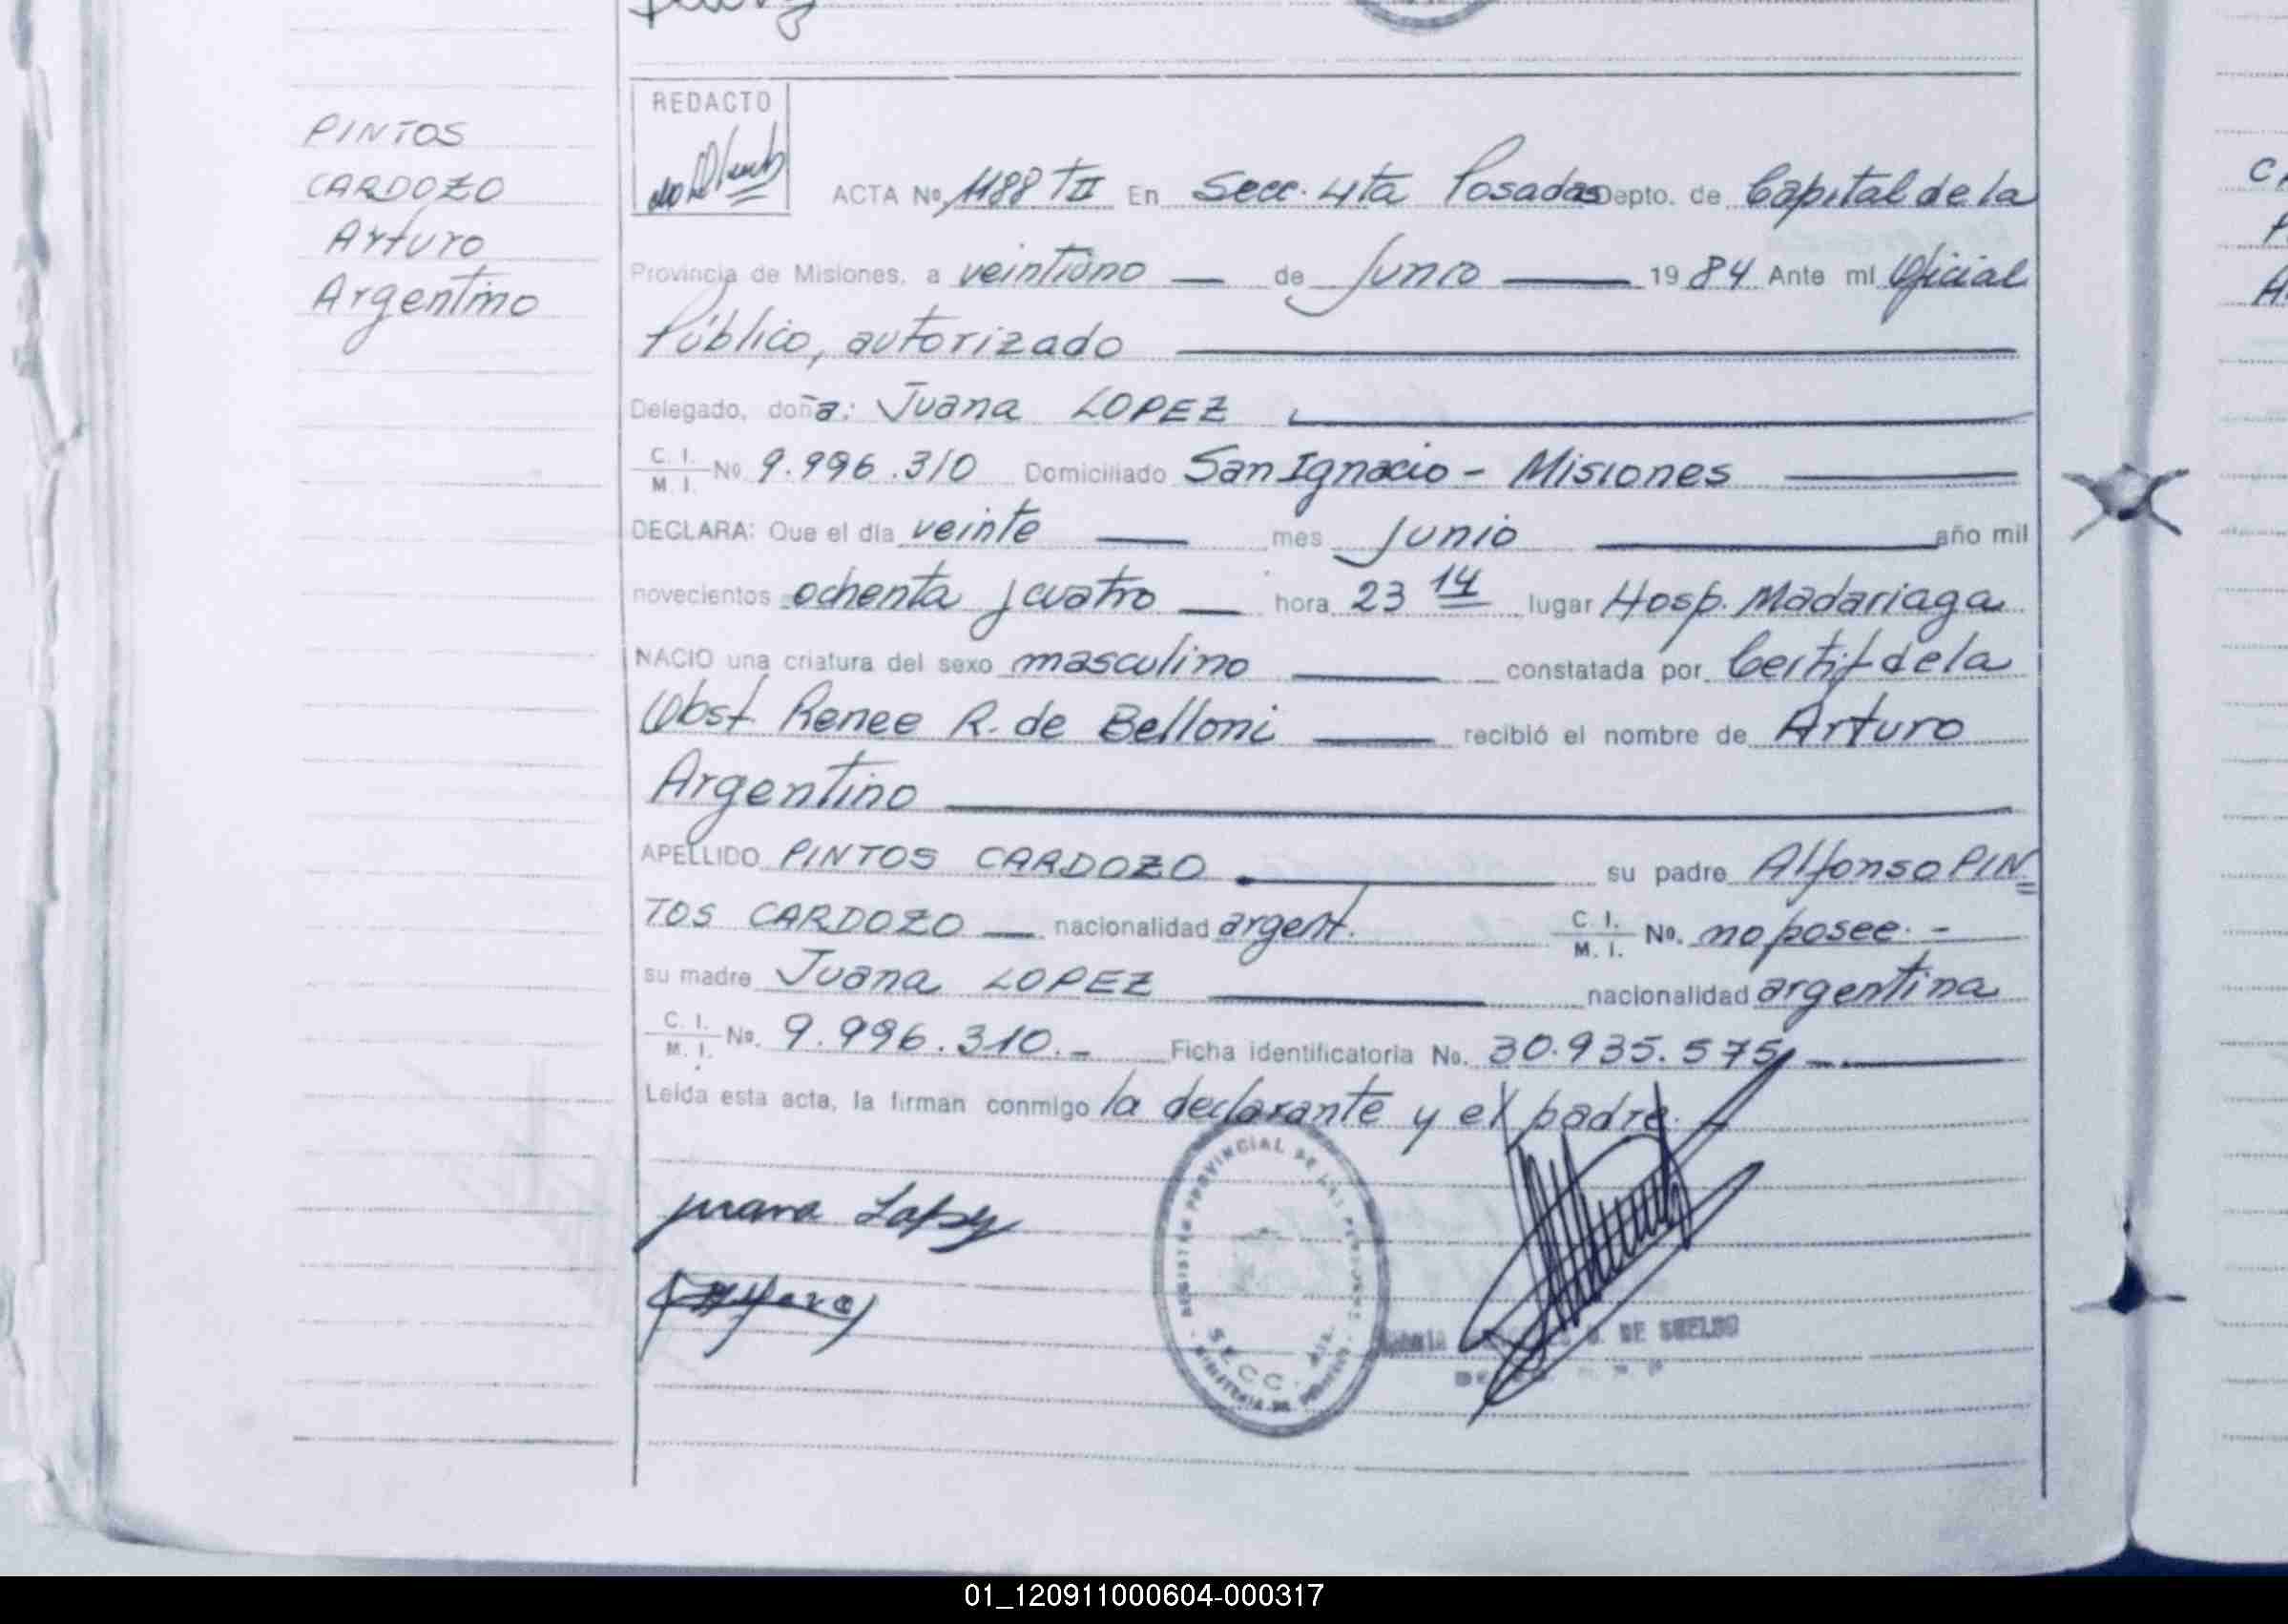 PINTOS
CARDOZO
Arturo
Argentino
REDACTO
ACTA No 1188 TII En Secc. 4ta Posadas Depto. de Capital de la
Provincia de Misiones, a veintiuno — de Junio — 19 84 Ante mi Oficial
Público, autorizado
Delegado, doña: Juana LOPEZ
C. I.
M. I. No 9.996.310 Domiciliado San Ignacio - Misiones
DECLARA: Que el día veinte — mes Junio — año mil
novecientos ochenta y cuatro — hora 23 14 lugar Hosp. Madariaga
NACIO una criatura del sexo masculino — constatada por Certif de la
Obst. Renee R. de Belloni — recibió el nombre de Arturo
Argentino
APELLIDO PINTOS CARDOZO su padre Alfonso PIN=
TOS CARDOZO — nacionalidad argent. C. I.
M. I. No. no posee. -
su madre Juana LOPEZ — nacionalidad argentina
C. I.
M. I. No. 9.996.310.- Ficha identificatoria No. 30.935.575
Leida esta acta, la firman conmigo la declarante y el padre. -
Juana Lopez
REGISTRO PROVINCIAL DE LAS PERSONAS
SECC. 4ta.
DE SUELDO
01_120911000604-000317